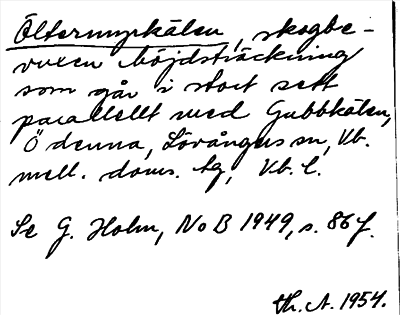 Öltermyrkälen, skogbe-
vuxen höjdsträckning
som går i stort sett
parallellt med Gubbkälen,
Ö denna, Lövångers sn, Vb.
mell. doms. tg, Vb. l.
Se G. Holm, NoB 1949, s. 86 f.
Th. A. 1954.